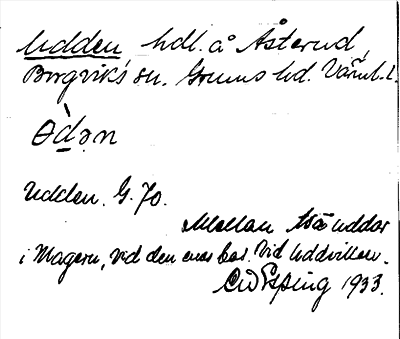 Udden, hdl. å Åsterud,
Borgviks sn. Grums hd. Värml. l.
Ò̱dən
Udden. G. 70.
Mellan två uddar
i Magern, vid den enas bas. Vid Uddviken.
1933.